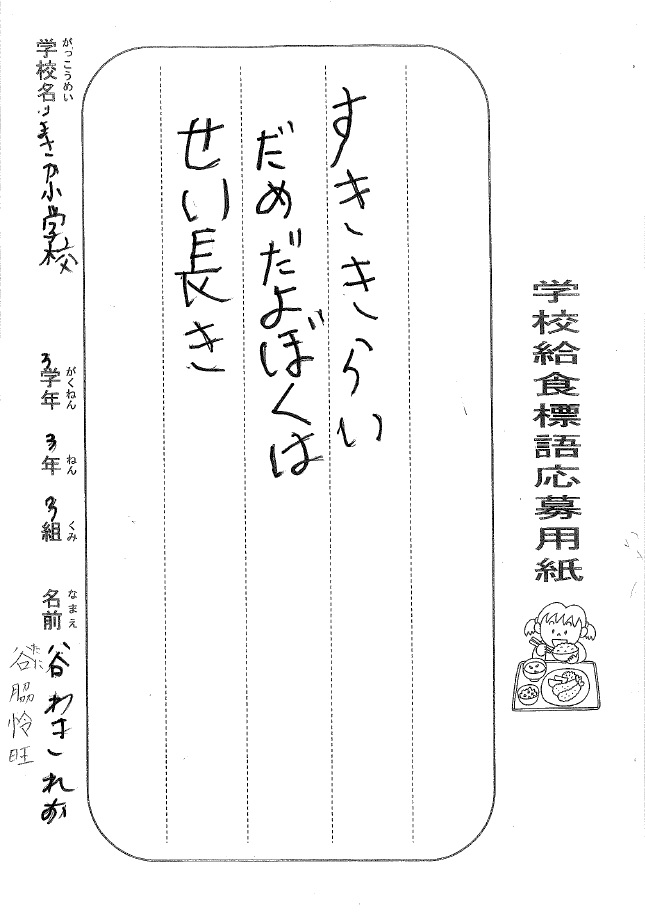 学校給食標語応募用紙
すききらい
だめだよぼくは
せい長き
がっこうめい
学校名
小学校
3学年
がくねん
3年
ねん
3組
くみ
なまえ
名前
谷わき れお
たに
谷脇怜旺